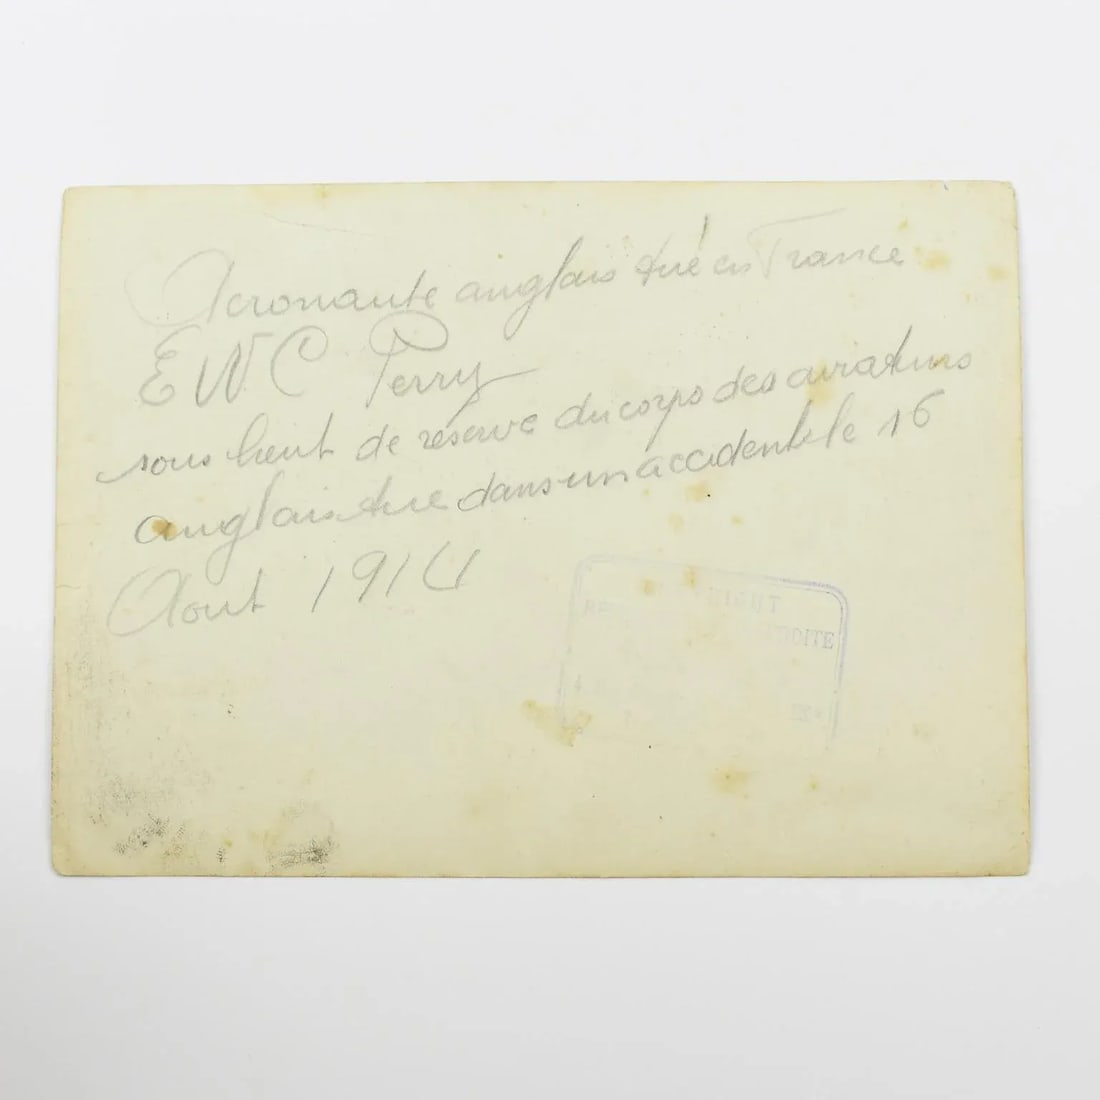 Aeronaute anglais tué en France
E W C Perry
sous lieut de réserve du corps des aviateurs
anglais tué dans un accident le 16
Aout 1914